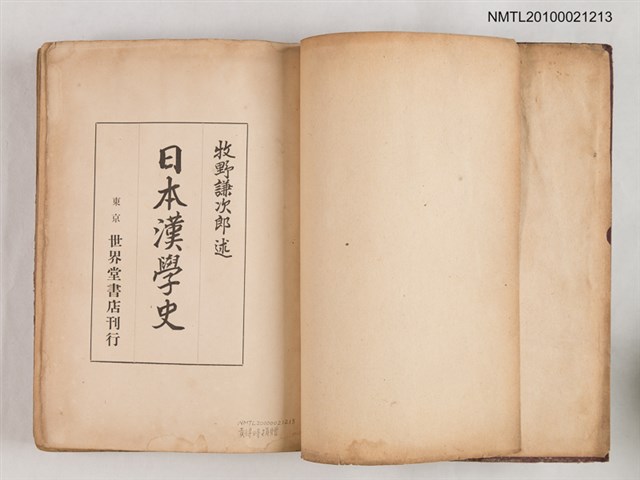 NMTL20100021213
牧野謙次郎 述
日本漢學史
東京 世界堂書店刊行
NMTL20100021213